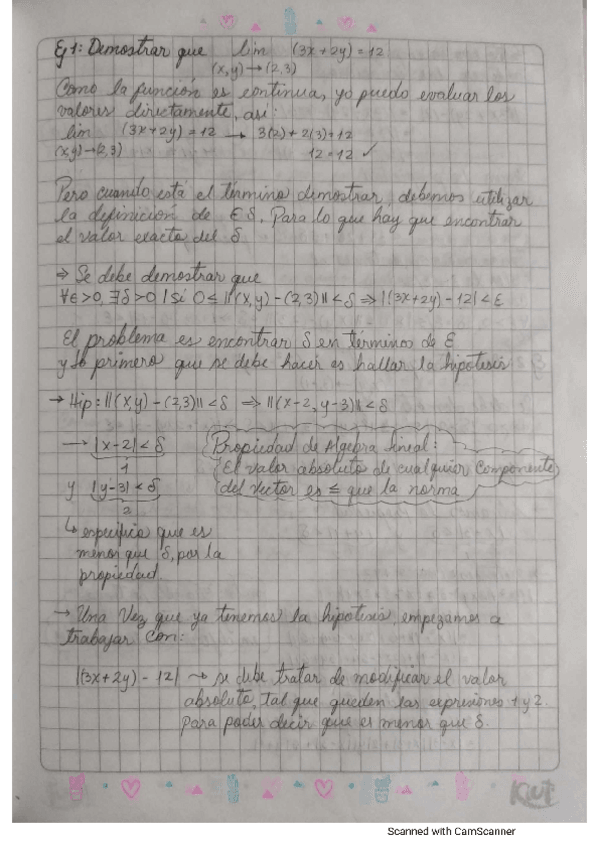 Ej 1: Demostrar que lim (3x+2y) = 12
(x,y)→(2,3)
Como la función es continua, yo puedo evaluar los
valores directamente, asi:
lim (3x+2y) = 12 → 3(2) + 2(3) = 12
(x,y)→(2,3) 12 = 12 ✓
Pero cuando está el término demostrar, debemos utilizar
la definición de ε δ. Para lo que hay que encontrar
el valor exacto del δ
⇒ Se debe demostrar que
∀ε>0, ∃δ>0 / si 0≤ ||(x,y) - (2,3)|| < δ ⇒ |(3x+2y) - 12| < ε
El problema es encontrar δ en términos de ε
y lo primero que se debe hacer es hallar la hipotesis
→ Hip: ||(x,y) - (2,3)|| < δ ⇒ ||(x-2, y-3)|| < δ
→ |x-2| < δ
1
y |y-3| < δ
2
Propiedad de Algebra lineal:
El valor absoluto de cualquier componente
del vector es ≤ que la norma
↳ especifica que es
menor que δ, por la
propiedad.
→ Una vez que ya tenemos la hipotesis, empezamos a
trabajar con:
|(3x+2y) - 12| → se debe tratar de modificar el valor
absoluto, tal que queden las expresiones 1 y 2.
Para poder decir que es menor que δ.
Scanned with CamScanner